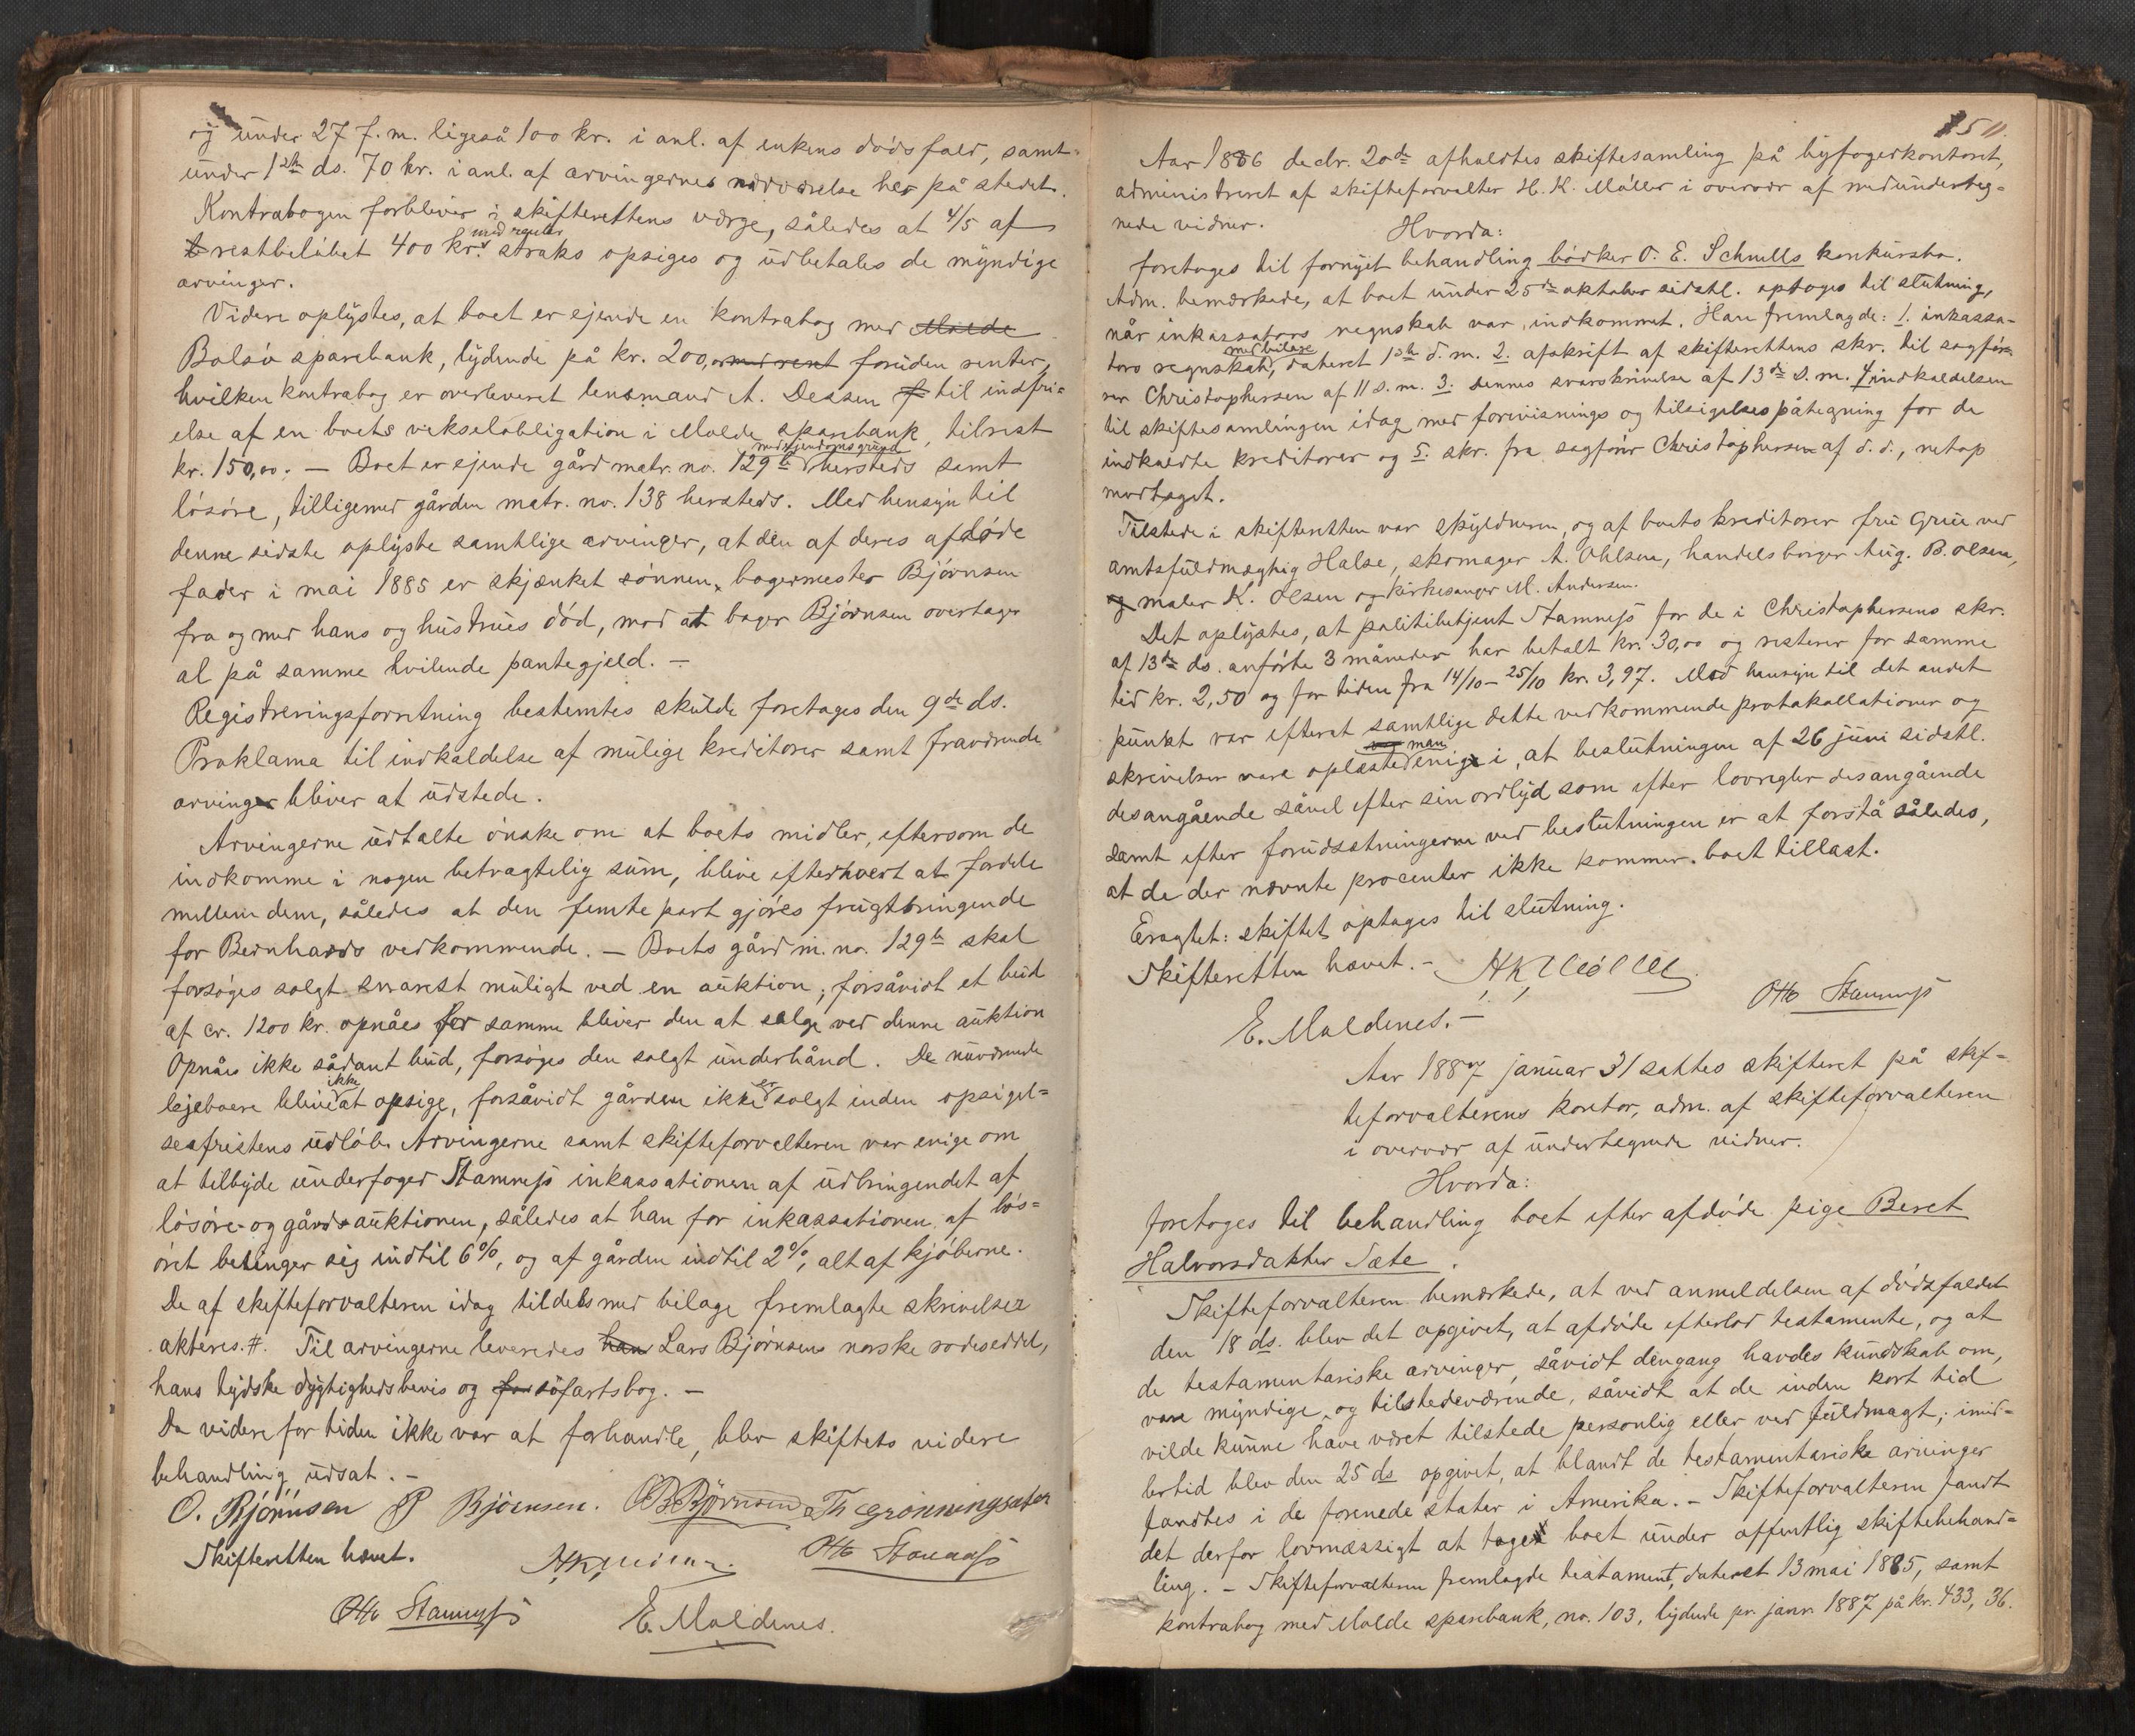 og under 27 f. m. ligeså 100 kr. i anl. af enkens dødsfald, samt
under 1ste ds. 70 kr. i anl. af arvingernes nærværelse her på stedet.
Kontrabogen forbliver i skifterettens værge, således at 4/5 af
restbeløbet 400 kr. med renter straks opsiges og udbetales de myndige
arvinger.
Videre oplystes, at boet er ejende en kontrabog med Molde
Bolsø sparebank, lydende på kr. 200,00 med rent foruden renter,
hvilken kontrabog er overleveret lensmand A. Dessen til indfri-
else af en boets vekselobligation i Molde sparebank, tilrest
kr. 150,00. — Boet er ejende gård matr. no. 129b med ejendomsgrund hersteds samt
løsøre, tilligemed gården matr. no. 138 hersteds. Med hensyn til
denne sidste oplyste samtlige arvinger, at den af deres afdøde
fader i mai 1885 er skjænket sønnen, bagermester Bjørnsen
fra og med hans og hustrues død, mod at bager Bjørnsen overtager
al på samme hvilende pantegjeld. —
Registreringsforretning bestemtes skulde foretages den 9de ds.
Proklama til indkaldelse af mulige kreditorer samt fraværende
arvinger bliver at udstede.
Arvingerne udtalte ønske om at boets midler, eftersom de
indkomme i nogen betragtelig sum, blive efterhvert at fordele
mellem dem, således at den femte part gjøres frugtbringende
for Bernhards vedkommende. — Boets gård m. no. 129b skal
forsøges solgt snarest muligt ved en auktion; forsåvidt et bud
af cr. 1200 kr. opnåes for samme bliver den at sælge ved denne auktion
Opnåes ikke sådant bud, forsøges den solgt underhånd. De nuværende
lejeboere blive ikke at opsige, forsåvidt gården ikke er solgt inden opsigel-
sesfristens udløb. Arvingerne samt skifteforvalteren var enige om
at tilbyde underfoged Stamnes inkassationen af udbringendet af
løsøre- og gårdsauktionen, således at han for inkassationen af løs-
øret betinger sig indtil 6%, og af gården indtil 2%, alt af kjøberne.
De af skifteforvalteren idag tildels med bilage fremlagte skrivelser
akteres. #. Til arvingerne leveredes han Lars Bjørnsens norske rodeseddel,
hans tydske dygtighedsbevis og for søfartsbog. —
Da videre for tiden ikke var at forhandle, blev skiftets videre
behandling udsat. —
O. Bjørnsen P Bjørnsen. O B Bjørnsen Th Grønningsæter
Skifteretten hævet. HKMøller. Otto Stamnes
Otto Stamnes E. Moldenes.
150.
Aar 1886 decbr. 20de afholdtes skiftesamling på byfogedkontoret,
administreret af skifteforvalter H. K. Møller i overvær af medunderteg-
nede vidner.
Hvorda:
foretoges til fornyet behandling bødker O. E. Schnells konkursbo.
Adm. bemærkede, at boet under 25de oktober sidstl. optoges til slutning,
når inkassators regnskab var indkommet. Han fremlagde: 1. inkassa-
tors regnskab, med bilage dateret 1ste d. m. 2. afskrift af skifterettens skr. til sagfør-
er Christophersen af 11 d. m. 3. dennes svarskrivelse af 13de d. m. 4. indkaldelsen
til skiftesamlingen idag med forevisnings og tilsigelsespåtegning for de
indkaldte kreditorer og 5. skr. fra sagfører Christophersen af d. d., netop
modtaget.
Tilstede i skifteretten var skyldneren, og af boets kreditorer fru Grue ved
amtsfuldmægtig Halse, skomager A. Ohlsen, handelsborger Aug. B. Olsen,
og maler K. Olsen og kirkesanger M. Andersen.
Det oplystes, at politibetjent Stamnes for de i Christophersens skr.
af 13de ds. anførte 3 måneder har betalt kr. 30,00 og resterer for samme
tid kr. 2,50 og for tiden fra 14/10 - 25/10 kr. 3,97. Med hensyn til det andet
punkt var efterat samtlige dette vedkommende protokollationer og
skrivelser vare oplæste var man enige i, at beslutningen af 26 juni sidstl.
desangående såvel efter sin ordlyd som efter lovregler desangående
samt efter forudsætningerne ved beslutningen er at forstå således,
at de der nævnte procenter ikke kommer boet tillast.
Eragtet: skiftet optages til slutning.
Skifteretten hævet. - HKMøller.
Otto Stamnes
E. Moldenes. —
Aar 1887 januar 31 sattes skifteret på skif-
teforvalterens kontor, adm. af skifteforvalteren
i overvær af undertegnede vidner.
Hvorda:
foretoges til behandling boet efter afdøde pige Beret
Halvorsdakter Sæte.
Skifteforvalteren bemærkede, at ved anmeldelsen af dødsfaldet
den 18 ds. blev det opgivet, at afdøde efterlod testamente, og at
de testamentariske arvinger, såvidt dengang havdes kundskab om,
vare myndige og tilstedeværende, såvidt at de inden kort tid
vilde kunne have været tilstede personlig eller ved fuldmagt; imid-
lertid blev den 25 ds opgivet, at blandt de testamentariske arvinger
fandtes i de forenede stater i Amerika. — Skifteforvalteren fandt
det derfor lovmæssigt at tage boet under offentlig skiftebehand-
ling. — Skifteforvalteren fremlagde testament, dateret 13 mai 1885, samt
kontrabog med Molde sparebank, no. 103, lydende pr. janr. 1887 på kr. 433,36.